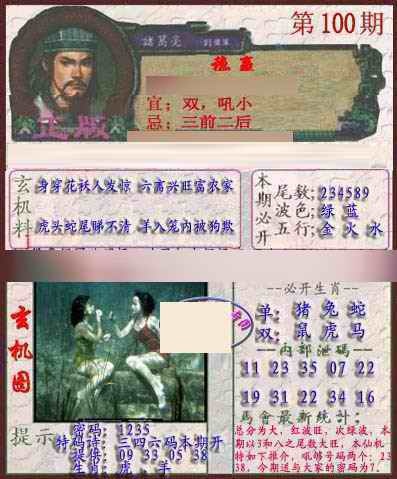 第100期
諸葛亮
稳赢
正版
宜；双，吼小
忌；三前二后
玄机料
身穿花袄人发惊 六畜兴旺富农家
虎头蛇尾睇不清 羊入笼内被狗欺
本期必开
尾数；234589
波色；绿 蓝
五行；金 火 水
玄机图
--必开生肖--
单：猪 兔 蛇
双：鼠 虎 马
--内部泄码--
11 23 35 07 22
19 31 22 34 16
馬會最新统計：
总分为大，红波旺，次绿波，本
期以3和八之尾数大旺，本仙机
特如下推介，吼够号码两个：23
38，今期送与大家的密码为7。
提示
密码：1235
特码诗：三四六码本期开
提供：09 33 05 38
生肖：虎，羊